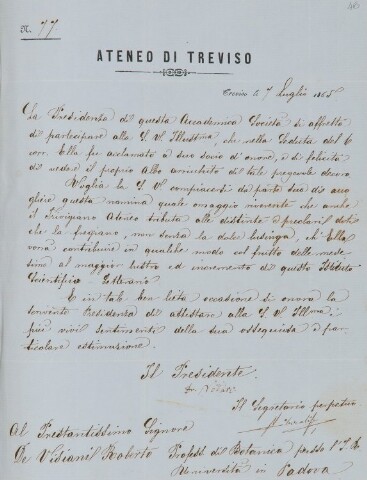 N. 77
ATENEO DI TREVISO
Treviso li 7 Luglio 1865
La Presidenza di questa Accademica Società si affretta
di partecipare alla S. V. Illustma, che nella Seduta del 6
corr. Ella fu acclamato a suo socio di onore, e si felicita
di vedere il proprio Albo arricchito di tale pregevole decoro
Voglia la S. V. compiacersi da parte sua di
gliere questa nomina quale omaggio riverente che anche
il Trivigiano Ateneo tributa alle distinte e preclari doti
che la fregiano, non senza la dolce lusinga, ch'Ella
vorrà contribuire in qualche modo col frutto delle mede-
sime al maggior lustro ed incremento di questo Istituto
Scientifico-Letterario
E in tale ben lieta occasione si onora la
Presidenza di attestare alla S. V. Illma i
più vivi sentimenti della sua ossequiosa e par-
ticolare estimazione.
Il Presidente
Il Segretario perpetuo
Al Prestantissimo Signore
De Visiani Roberto Profess. di Botanica presso l'I. R.
Università in Padova